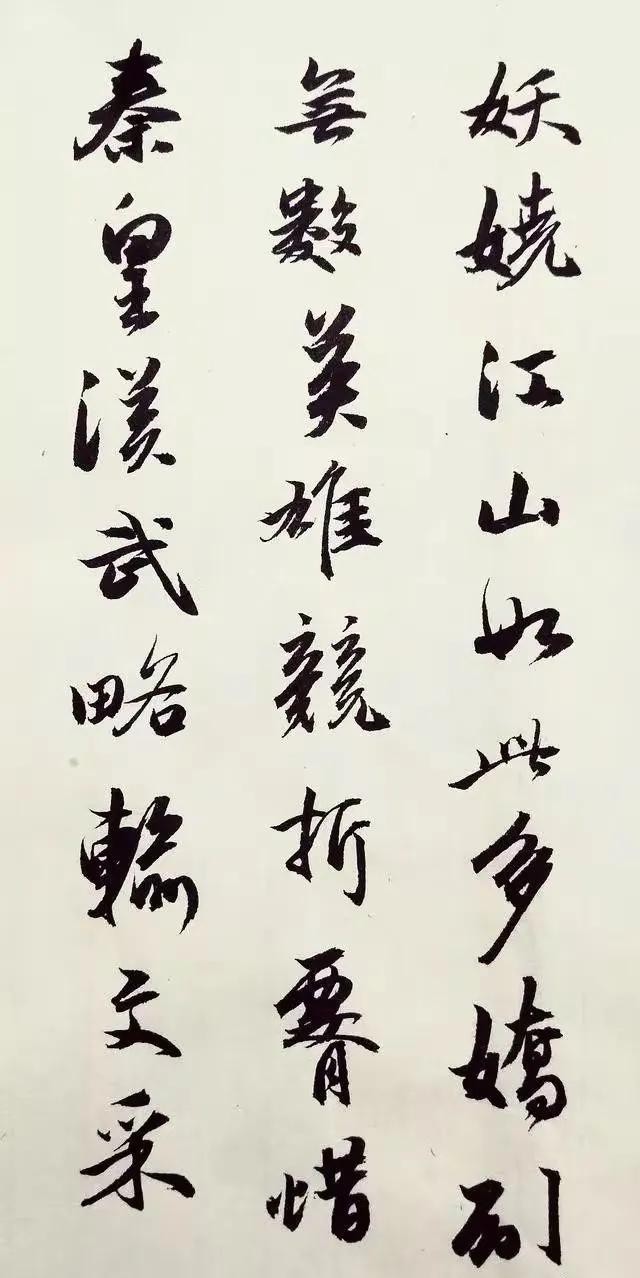 妖嬈江山如此多嬌引
無數英雄競折腰惜
秦皇漢武略輸文采